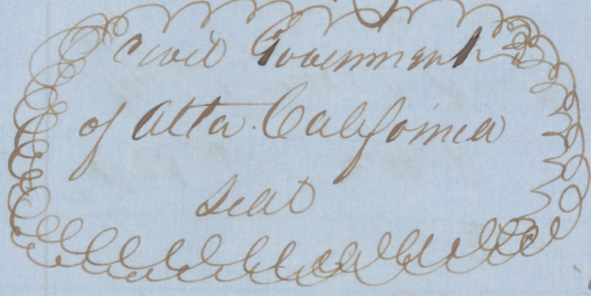 Civil Government
of Alta California
Seal